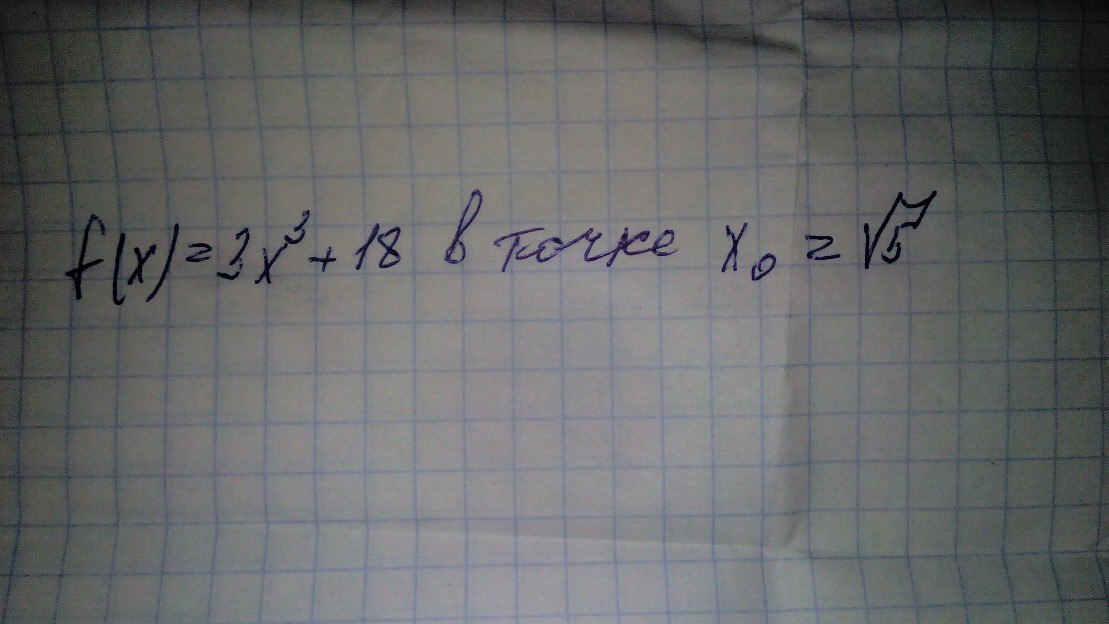 f(x)=3x³+18 в точке x₀=√5